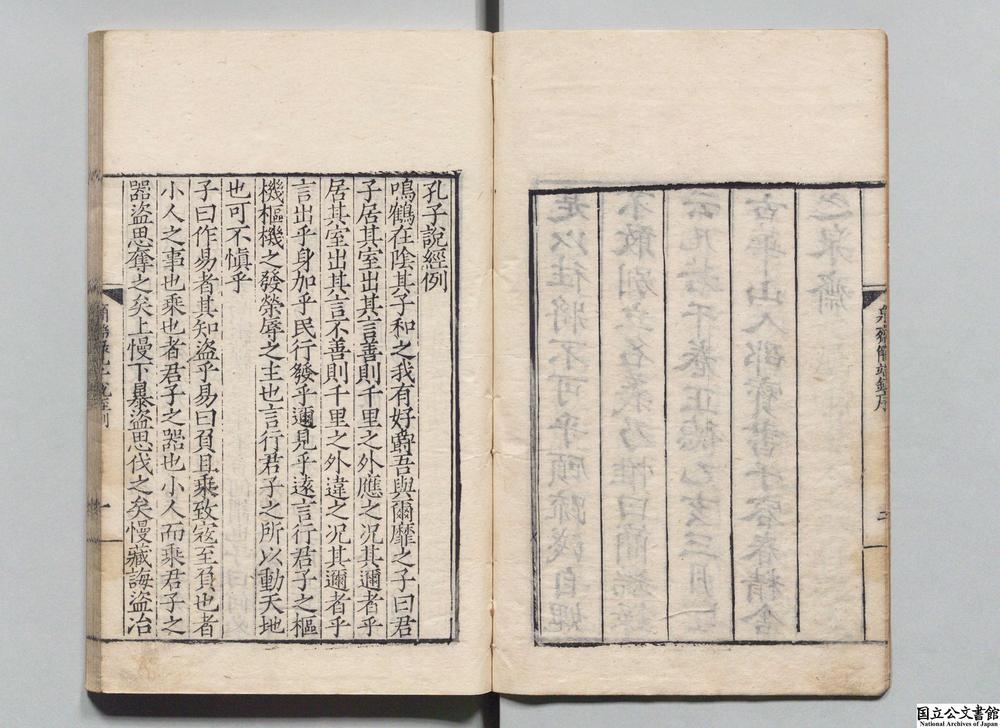 泉齋簡端錄序
二
孔子說經例
鳴鶴在陰其子和之我有好爵吾與爾靡之子曰君
子居其室出其言善則千里之外應之况其邇者乎
居其室出其言不善則千里之外違之况其邇者乎
言出乎身加乎民行發乎邇見乎遠言行君子之樞
機樞機之發榮辱之主也言行君子之所以動天地
也可不愼乎
子曰作易者其知盜乎易曰負且乘致寇至負也者
小人之事也乘也者君子之器也小人而乘君子之
器盜思奪之矣上慢下暴盜思伐之矣慢藏誨盜冶
一
国立公文書館
National Archives of Japan